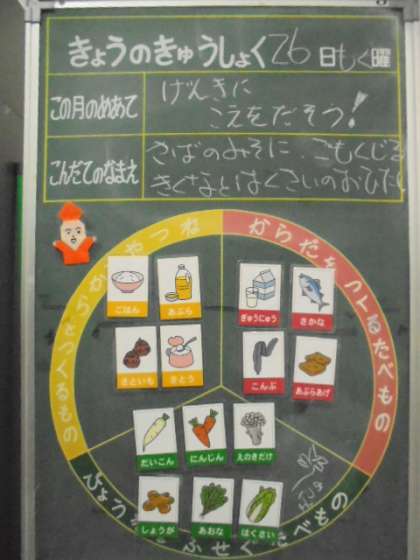 きょうのきゅうしょく26日もく曜
この月のめあて
げんきに
こえをだそう!
こんだてのなまえ
さばのみそに、ごもくじる
きくなとはくさいのおひたし
からだをつくるたべもの
ごはん
あぶら
ぎゅうにゅう
さかな
さといも
さとう
こんぶ
あぶらあげ
だいこん
にんじん
えのきだけ
しょうが
あおな
はくさい